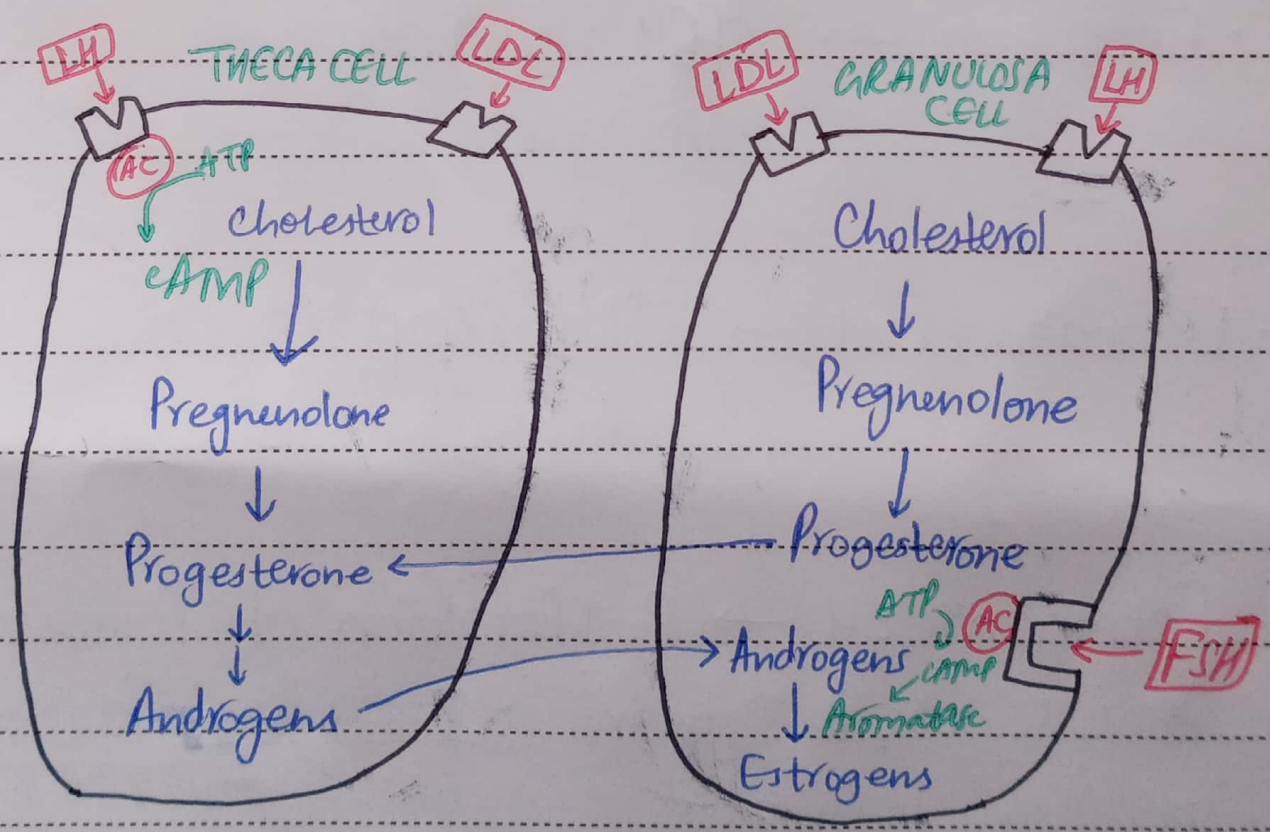 LH
THECA CELL
LDL
AC
ATP
cAMP
Cholesterol
Pregnenolone
Progesterone
Androgens
LDL
GRANULOSA
CELL
LH
Cholesterol
Pregnenolone
Progesterone
ATP
AC
FSH
cAMP
Androgens
Aromatase
Estrogens